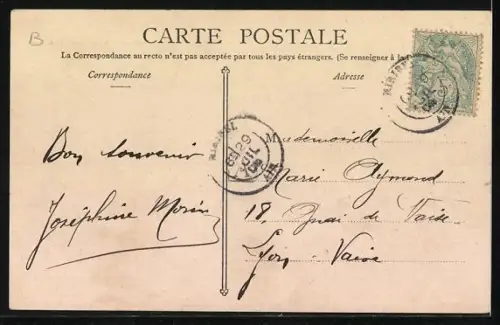 B
CARTE POSTALE
La Correspondance au recto n'est pas acceptée par tous les pays étrangers. (Se renseigner à la
Correspondance
Adresse
Bon souvenir
Joséphine Morin
Mademoiselle
Marie Aymond
18, Quai de Vaise
Lyon-Vaise
29
JUIL
AIN